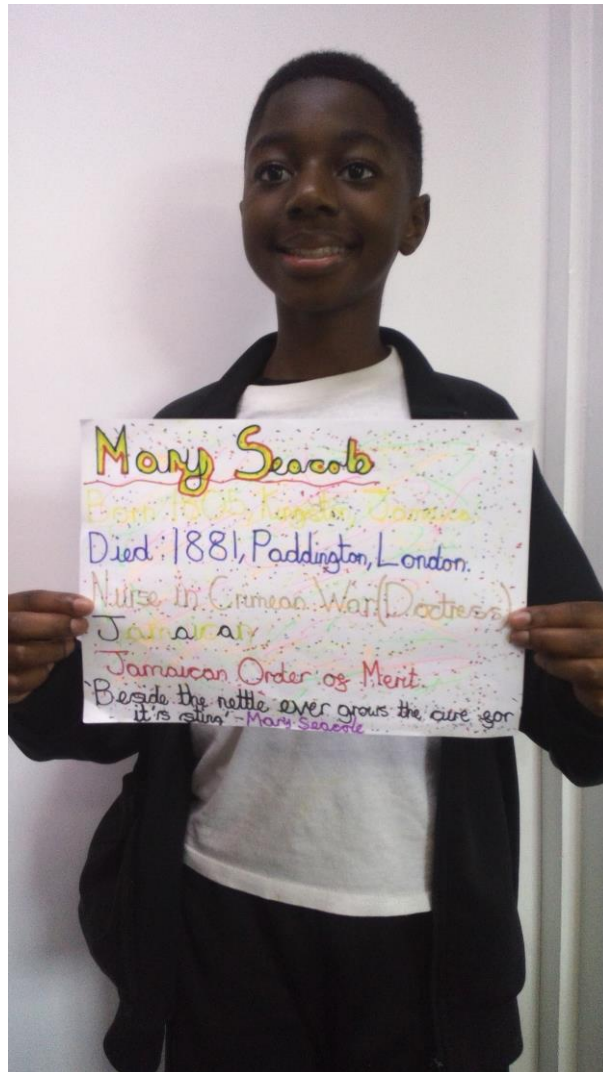 Mary Seacole
Born 1805, Kingston, Jamaica.
Died : 1881, Paddington, London.
Nurse in Crimean War (Doctress)
Jamaican
Jamaican Order of Merit.
'Beside the nettle ever grows the cure for
it's sting' - Mary Seacole